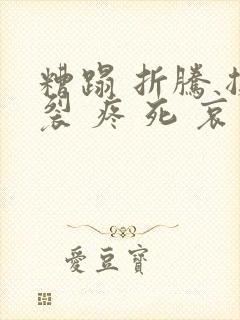 糟蹋 折騰
裂 疼 死 哀
愛豆寶